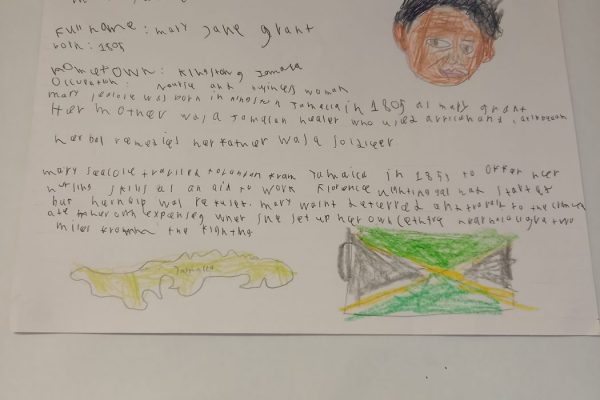 Full name: mary Jane grant
born: 1805
hometown: Kingstong Jamaca
Occuption: nourse and buisness woman
mary seacole was born in kingston Jamacia in 1805 as mary grant
Her mother was a Jamacan healer who used african and caribbean
herbal remedies her father was a soldieer.
mary seacole traviled to London from Jamaica in 1853 to offer her
nursing skills as an aid to work Florence nightingal had started
but her help was refused. mary wasnt deterred and travels to the crimea
at her own expenses wher she set up her own centre near balaclava two
miles from the fighting
Jamaica